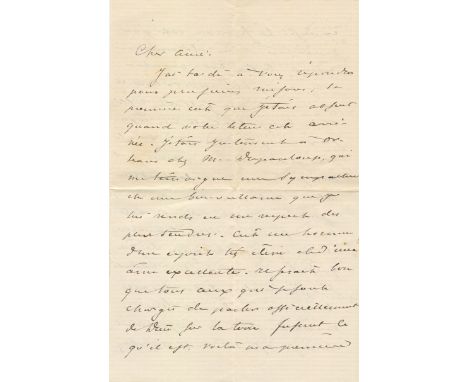 Cher ami.
J'ai tardé à vous répondre
pour plusieurs raisons; la
première c'est que j'étais absent
quand votre lettre est arri-
vée. J'étais justement à Or-
léans chez Mr. Dupanloup, qui
me témoigne une sympathie
et une bienveillance que je
lui rends en un respect des
plus tendres. C'est un homme
d'un esprit très élevé et d'une
âme excellente. Il serait bon
que tous ceux qui
chargés de parler officiellement
de Dieu sur la terre fussent ce
qu'il est. Voilà ma première